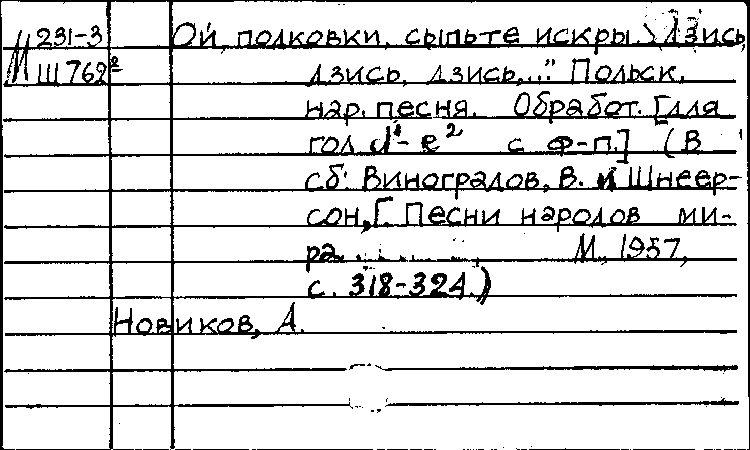 М 231-3
Ш 762²
Ой, подковки, сыпьте искры. "Дзись,
дзись, дзись,..." Польск.
нар. песня. Обработ. [для
гол. d¹-e² с ф-п.] (В
сб: Виноградов, В. и Шнеер-
сон, Г. Песни народов ми-
ра. М., 1957,
с. 318-324.)
Новиков, А.